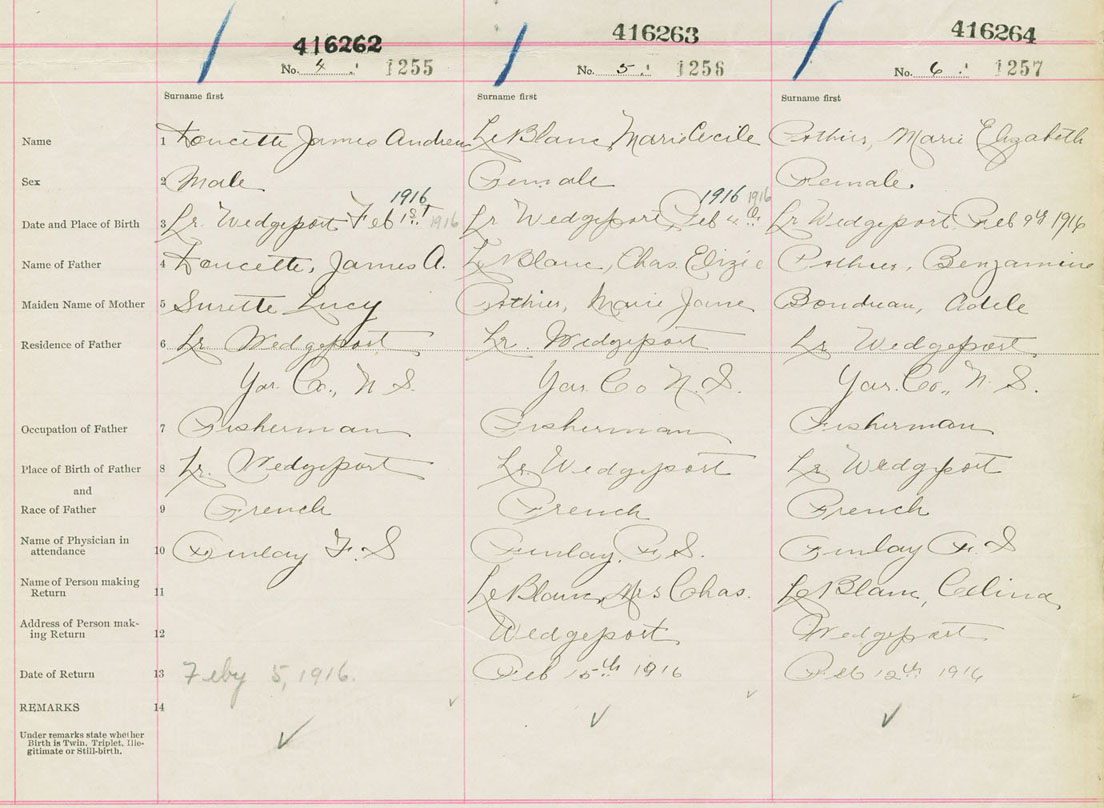 416262 416263 416264
No. 4 1255 No. 5 1256 No. 6 1257
Surname first Surname first Surname first
Name 1 Doucette James Andrew LeBlanc, Marie Cecile Pothier, Marie Elizabeth
Sex 2 Male Female Female.
1916 1916 1916
Date and Place of Birth 3 Lr. Wedgeport Feb 1st 1916 Lr Wedgeport, Feb Lr Wedgeport Feb 9th 1916
Name of Father 4 Doucette, James A. LeBlanc, Chas. Elizie Pothier, Benjamine
Maiden Name of Mother 5 Surette Lucy Pothier, Marie Jane Boudreau, Adele
Residence of Father 6 Lr Wedgeport Lr. Wedgeport Lr Wedgeport
Yar. Co., N S. Yar. Co N. S. Yar. Co., N. S.
Occupation of Father 7 Fisherman Fisherman Fisherman
Place of Birth of Father 8 Lr. Wedgeport Lr Wedgeport Lr Wedgeport
and
Race of Father 9 French French French
Name of Physician in
attendance 10 Finlay F. S Finlay, F. S. Finlay F. S
Name of Person making
Return 11 LeBlanc, Mrs Chas. LeBlanc, Celina
Address of Person mak-
ing Return 12 Wedgeport Wedgeport
Date of Return 13 Feby 5, 1916. Feb 15th 1916 Feb 12th 1916
REMARKS 14
Under remarks state whether
Birth is Twin, Triplet, Ille-
gitimate or Still-birth.